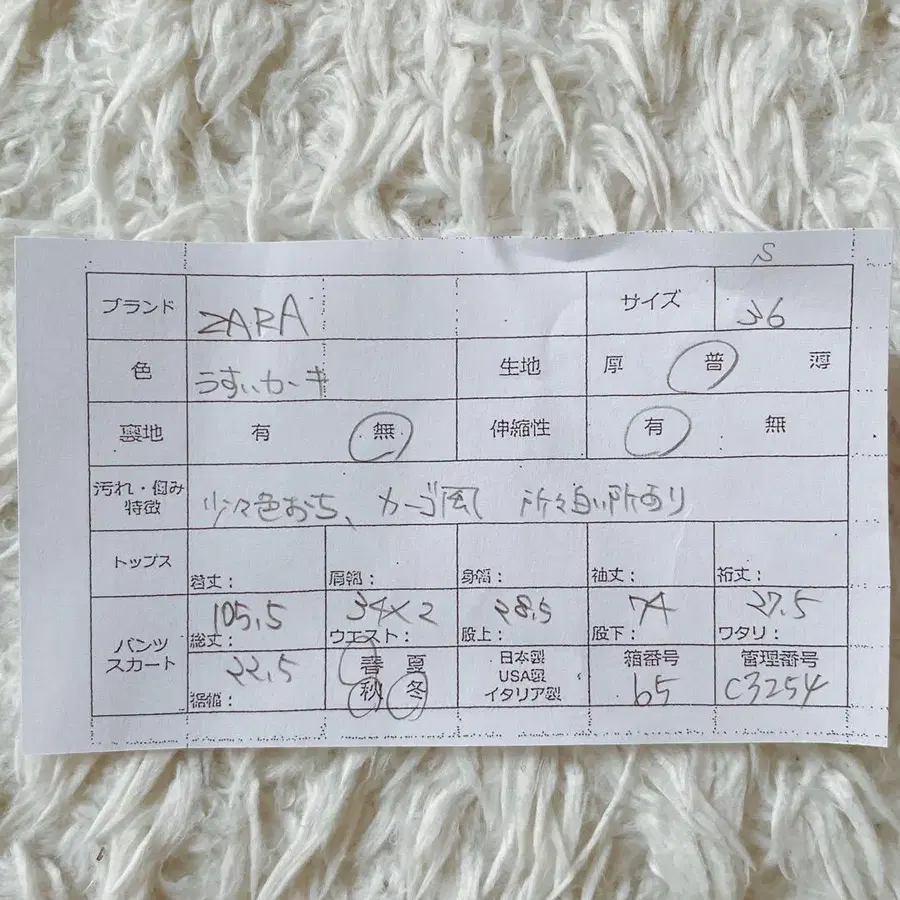 S
ブランド ZARA サイズ 36
色 うすいカーキ 生地 厚 普 薄
裏地 有 無 伸縮性 有 無
汚れ・傷み
特徴 少々色おち、カーゴ風 所々白い所あり
トップス 着丈: 肩幅: 身幅: 袖丈: 裄丈:
パンツ
スカート
105.5 34×2 28.5 74 27.5
総丈: ウエスト: 股上: 股下: ワタリ:
22.5 春 夏 日本製 箱番号 管理番号
USA製
裾幅: 秋 冬 イタリア製 65 C3254